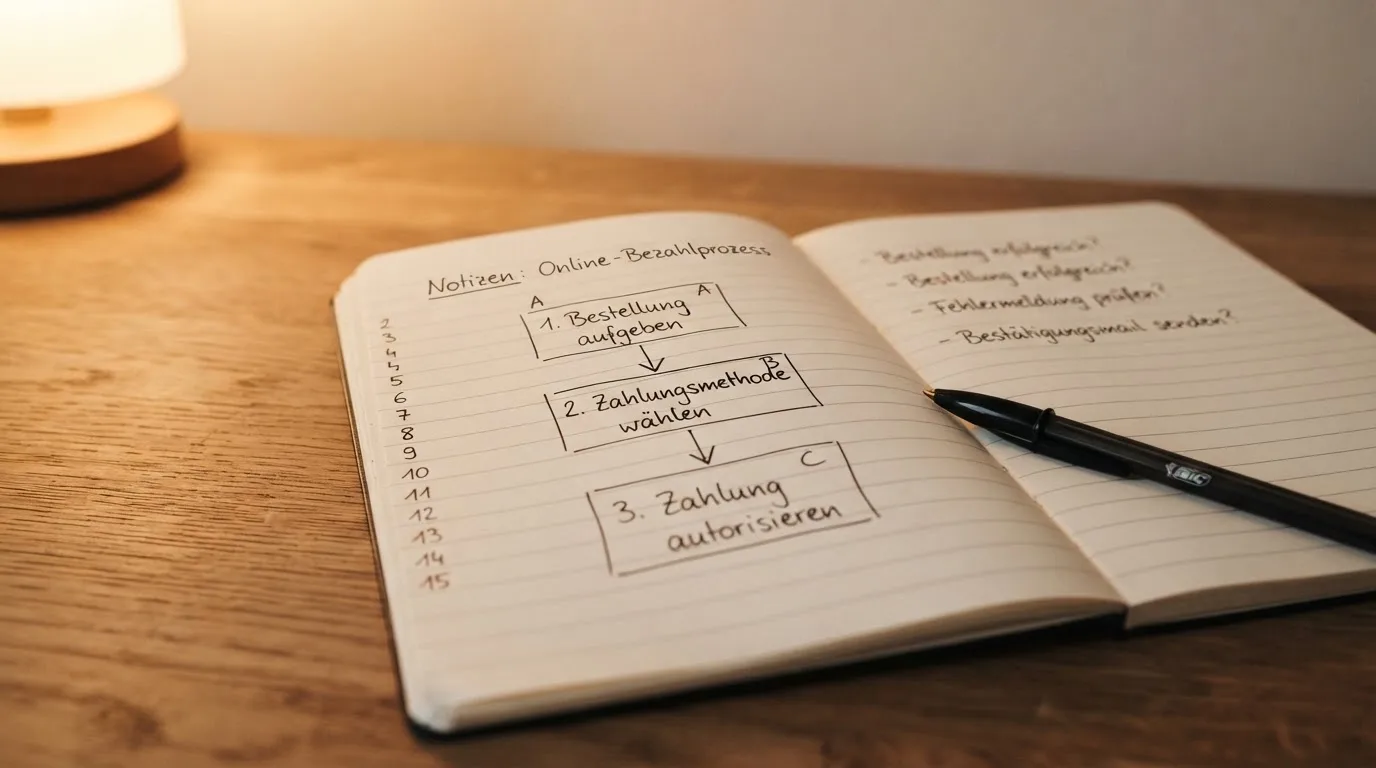 Notizen: Online-Bezahlprozess
A
A
1. Bestellung
aufgeben
B
2. Zahlungsmethode
wählen
C
3. Zahlung
autorisieren
2
3
4
4
5
6
7
8
9
10
11
12
13
14
15
- Bestellung erfolgreich?
- Bestellung erfolgreich?
- Fehlermeldung prüfen?
- Bestätigungsmail senden?
BIC